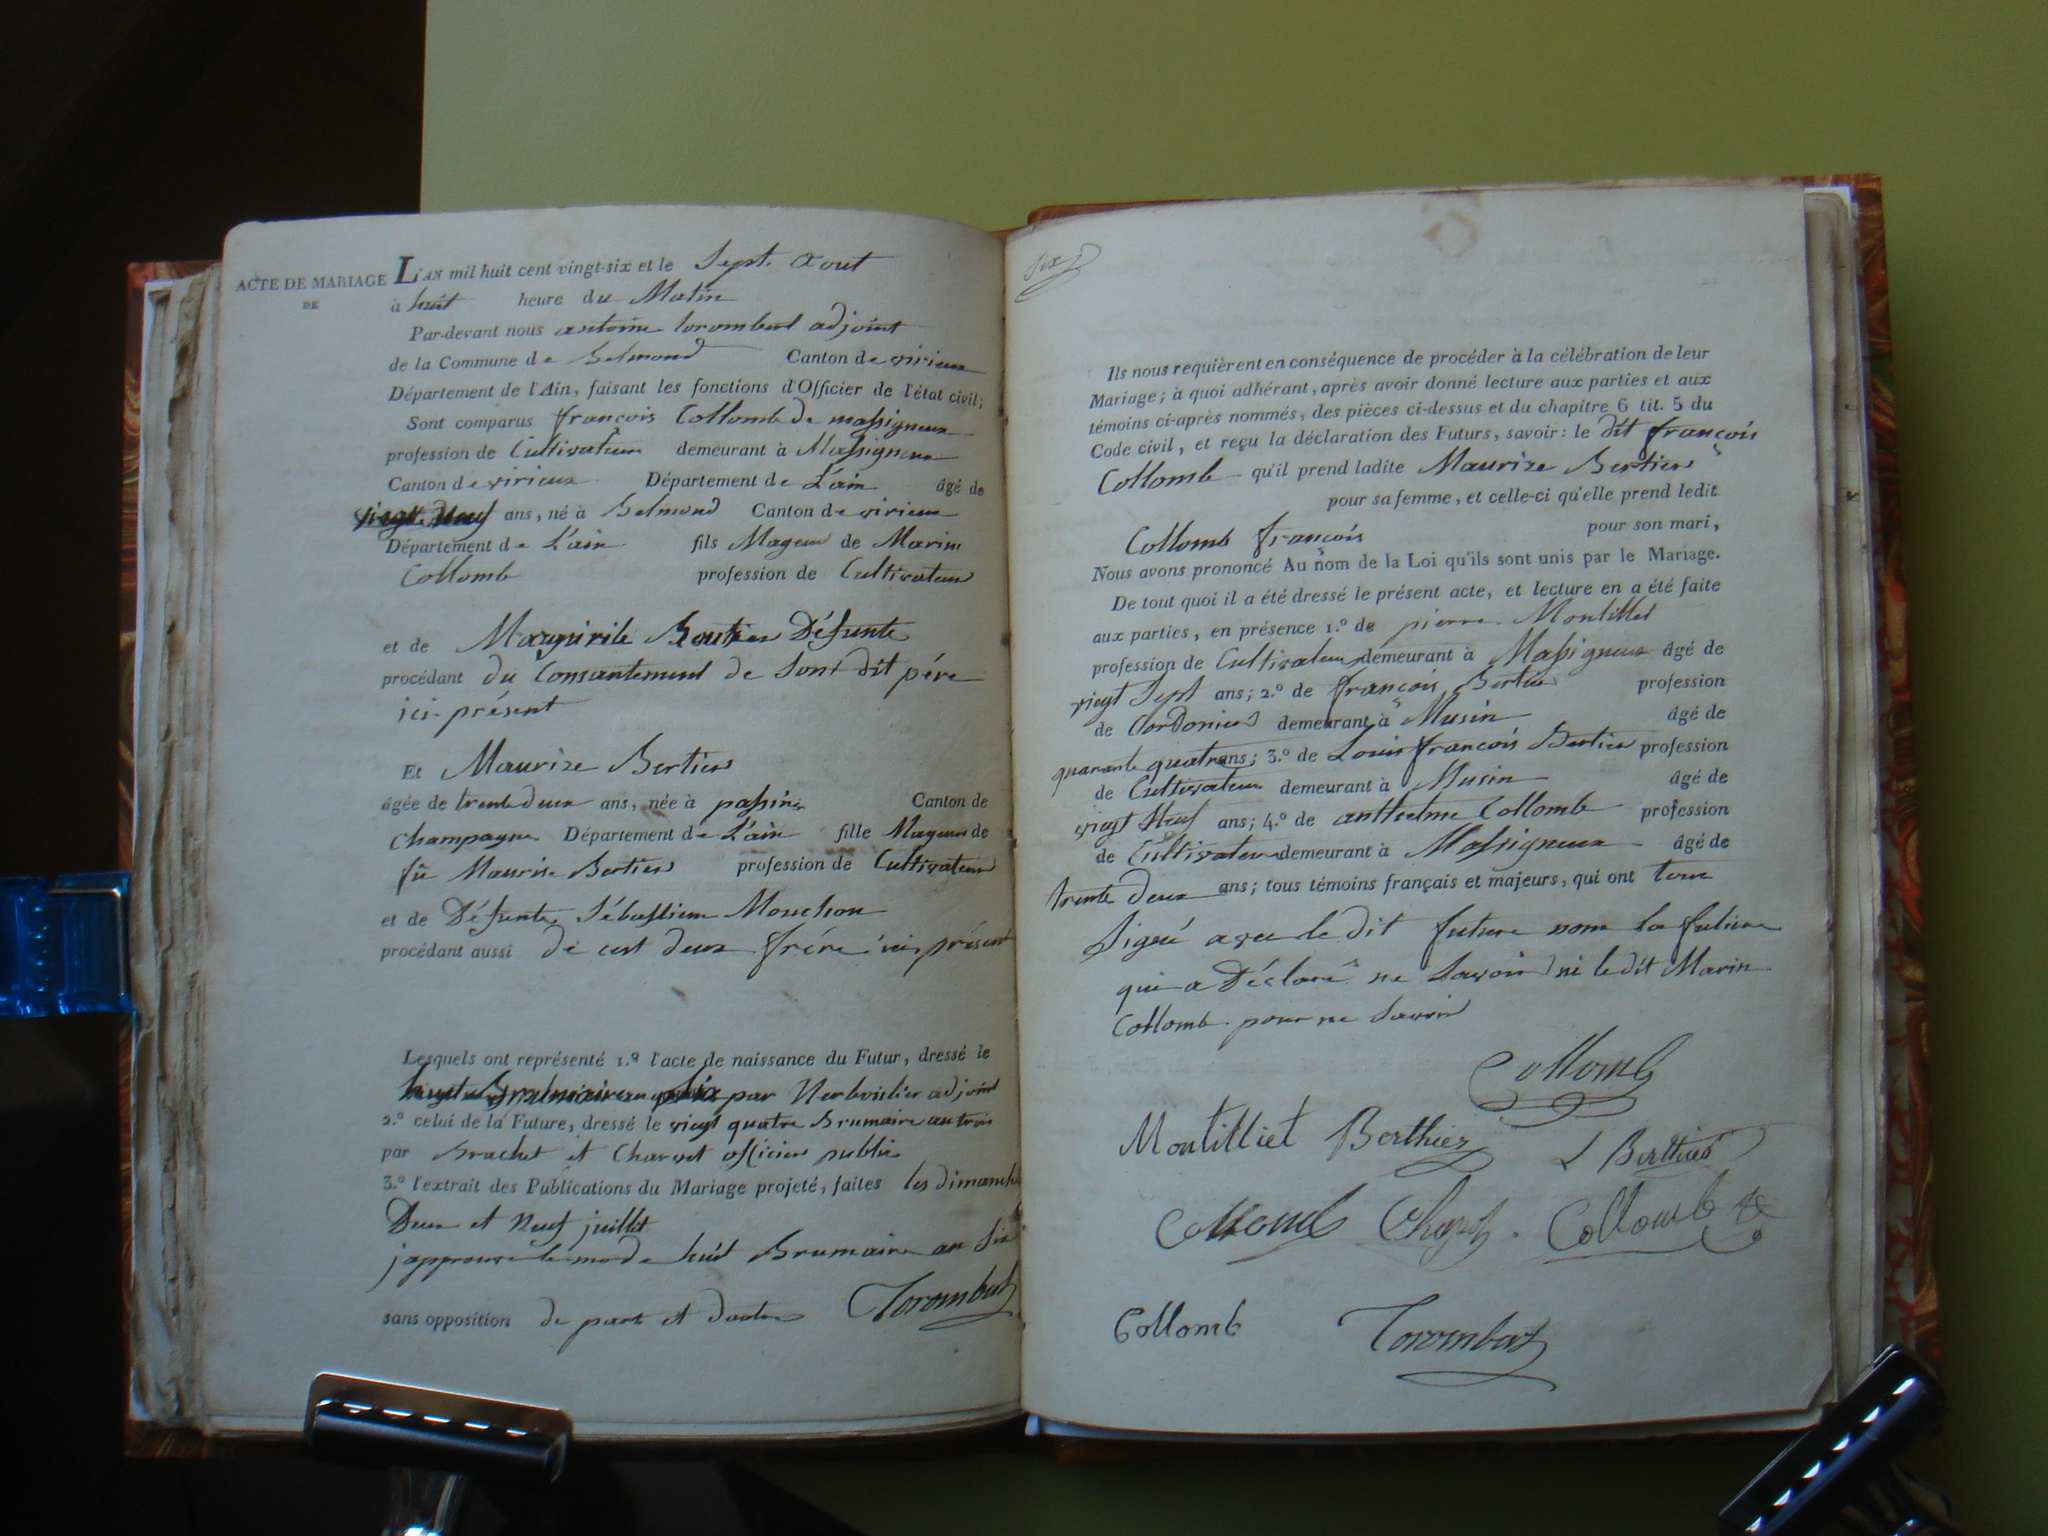 ACTE DE MARIAGE
DE
L'AN mil huit cent vingt-six et le Sept aout
à huit heure du Matin
Par-devant nous antoine torombert adjoint
de la Commune de Belmond Canton de virieux
Département de l'Ain, faisant les fonctions d'Officier de l'état civil;
Sont comparus françois Collomb de massigneux
profession de Cultivateur demeurant à Massigneux
Canton de virieux Département de L'ain âgé de
vingt Neuf ans, né à Belmond Canton de virieux
Département de L'ain fils Mageur de Marin
Collomb profession de Cultivateur
et de Marguirite Défunte
procédant du Consantement de Sont dit pére
ici présent
Et Maurize Bertier
âgée de trente deux ans, née à passin Canton de
Champagne Département de L'ain fille Mageur de
fû Maurise Bertier profession de Cultivateur
et de Défunte Sébastienne Mouchon
procédant aussi de cest deux frére ici présent
Lesquels ont représenté 1.º l'acte de naissance du Futur, dressé le
huit Brumaire an Six par adjoint
2.º celui de la Future, dressé le vingt quatre Brumaire an trois
par Brachet et Charvet officier public
3.º l'extrait des Publications du Mariage projeté, faites les dimanche
Deux et Neuf juillet
japprouve le mo de huit Brumaire an Six
sans opposition de part et dautre Torombert
Six
Ils nous requièrent en conséquence de procéder à la célébration de leur
Mariage; à quoi adhérant, après avoir donné lecture aux parties et aux
témoins ci-après nommés, des pièces ci-dessus et du chapitre 6 tit. 5 du
Code civil, et reçu la déclaration des Futurs, savoir: le dit françois
Collomb qu'il prend ladite Maurize Bertier
pour sa femme, et celle-ci qu'elle prend ledit
Collomb françois pour son mari,
Nous avons prononcé Au nom de la Loi qu'ils sont unis par le Mariage.
De tout quoi il a été dressé le présent acte, et lecture en a été faite
aux parties, en présence 1.º de pierre Montillet
profession de Cultivateur demeurant à Massigneux âgé de
vingt Sept ans; 2.º de françois Bertier profession
de Cordonier demeurant à Musin âgé de
quarante quatre ans; 3.º de Louis françois Bertier profession
de Cultivateur demeurant à Musin âgé de
vingt Neuf ans; 4.º de anthelme Collomb profession
de Cultivateur demeurant à Massigneux âgé de
trente deux ans; tous témoins français et majeurs, qui ont tous
Signé avec le dit future nom la future
qui a Déclaré ne Savoir ni le dit Marin
Collomb pour ne Savoir
Collomb
Montilliet Berthier L Berthier
Collomb Collomb
Collomb Torombert